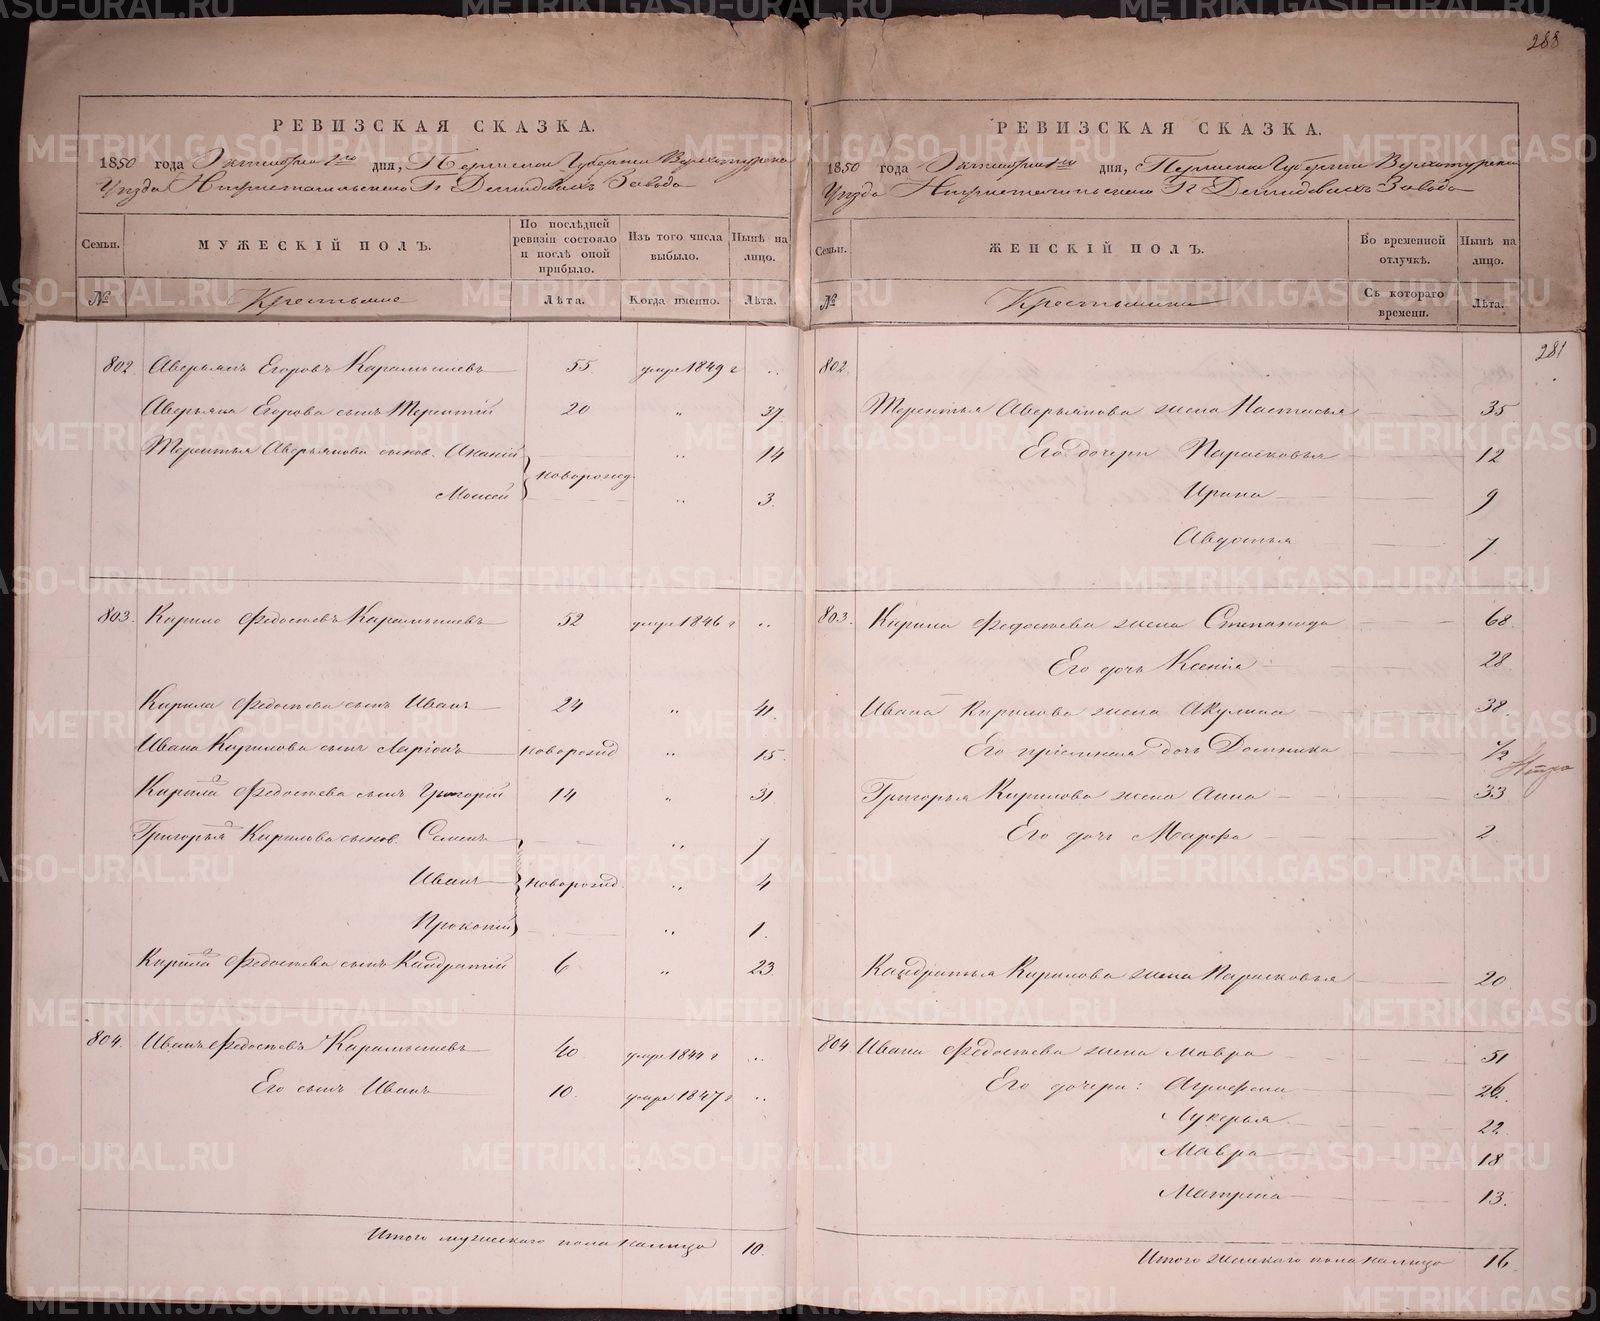 288
РЕВИЗСКАЯ СКАЗКА.
1850 года Октября 1го дня, Пермской Губернии Верхотурскаго
Уѣзда Нижнетагильскаго Гг. Демидовыхъ Завода
Семьи. МУЖЕСКІЙ ПОЛЪ. По послѣдней ревизіи состояло и послѣ оной прибыло. Изъ того числа выбыло. Нынѣ на лицо.
№ Крестьяне Лѣта. Когда именно. Лѣта.
802. Аверьянъ Егоровъ Карамышевъ 55 умре 1849 г ..
Аверьяна Егорова сынъ Терентій 20 „ 37.
Терентья Аверьянова сынов. Ананій новорожд. „ 14
Моисей „ 3.
803. Кирило Федосѣевъ Карамышевъ 52 умре 1846 г ..
Кирила Федосѣева сынъ Иванъ 24 „ 41.
Ивана Кирилова сынъ Ларіонъ новорожд „ 15.
Кирила Федосѣева сынъ Григорій 14 „ 31
Григорья Кирилова сынов. Семенъ „ 7
Иванъ новорожд. „ 4
Прокопій „ 1.
Кирила Федосѣева сынъ Кандратій 6 „ 23.
804. Иванъ Федосѣевъ Карамышевъ 40 умре 1844 г ..
Его сынъ Иванъ 10. умре 1847 г ..
Итого мужескаго пола налицо 10.
РЕВИЗСКАЯ СКАЗКА.
1850 года Октября 1го дня, Пермской Губерніи Верхотурскаго
Уѣзда Нижнетагильскаго Гг. Демидовыхъ Завода
Семьи. ЖЕНСКІЙ ПОЛЪ. Во временной отлучкѣ. Нынѣ на лицо.
№ Крестьянки Съ котораго времени. Лѣта.
281
802.
Терентья Аверьянова жена Настасья 35
Его дочери Парасковья 12
Ирина 9
Авдотья 7
803. Кирила Федосѣева жена Степанида 68.
Его дочь Ксенія 28
Ивана Кирилова жена Акулина 38.
Его пріемная дочь Домника 1/2
Григорья Кирилова жена Анна 33
Его дочь Марфа 2
Кандратья Кирилова жена Парасковья 20
804 Ивана Федосѣева жена Мавра 51
Его дочери: Аграфена 26.
Лукерья 22
Мавра 18
Матрена 13.
Итого женскаго пола налицо 16
METRIKI.GASO-URAL.RU